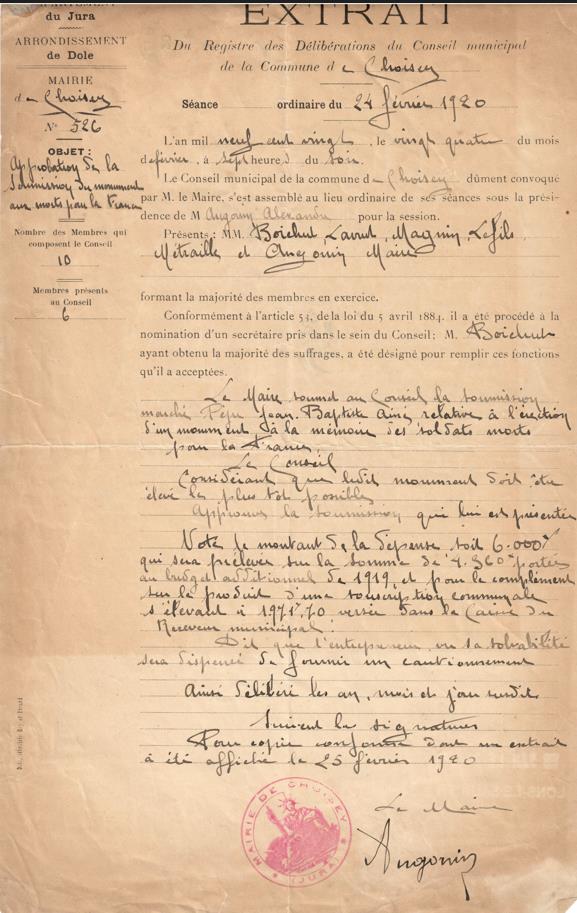 DÉPARTEMENT
du Jura
ARRONDISSEMENT
de Dole
MAIRIE
de Choisey
N° 526
OBJET :
Approbation de la
Soumission du monument
aux morts pour la France
Nombre des Membres qui
composent le Conseil
10
Membres présents
au Conseil
6
EXTRAIT
Du Registre des Délibérations du Conseil municipal
de la Commune de Choisey
Séance ordinaire du 24 février 1920
L'an mil neuf cent vingt, le vingt quatre du mois
de février, à sept heures du soir.
Le Conseil municipal de la commune de Choisey dûment convoqué
par M. le Maire, s'est assemblé au lieu ordinaire de ses séances sous la prési-
dence de M Angonin Alexandre pour la session.
Présents : MM. Boichut, Lavrut, Magnin, Lefils,
Métraille et Angonin Maire
formant la majorité des membres en exercice.
Conformément à l'article 53, de la loi du 5 avril 1884, il a été procédé à la
nomination d'un secrétaire pris dans le sein du Conseil; M. Boichut
ayant obtenu la majorité des suffrages, a été désigné pour remplir ces fonctions
qu'il a acceptées.
Le Maire soumet au Conseil la soumission
marché Jean-Baptiste Ainé relative à l'érection
d'un monument à la mémoire des soldats morts
pour la France
Le Conseil
Considérant que ledit monument doit être
élevé le plus tôt possible
Approuve la soumission qui lui est présentée
Vote le montant de la dépense soit 6.000f
qui sera prélevée sur la somme de 4.360f portée
au budget additionnel de 1919, et pour le complément
sur le produit d'une souscription communale
s'élevant à 1971f,70 versée dans la Caisse du
Receveur municipal.
Dit que l'entrepreneur, vu sa solvabilité
sera dispensé de fournir un cautionnement
Ainsi délibéré les an, mois et jour susdits
Suivent les signatures
Pour copie conforme dont un extrait
à été affiché le 25 février 1920
MAIRIE DE CHOISEY
(JURA)
Le Maire
Angonin